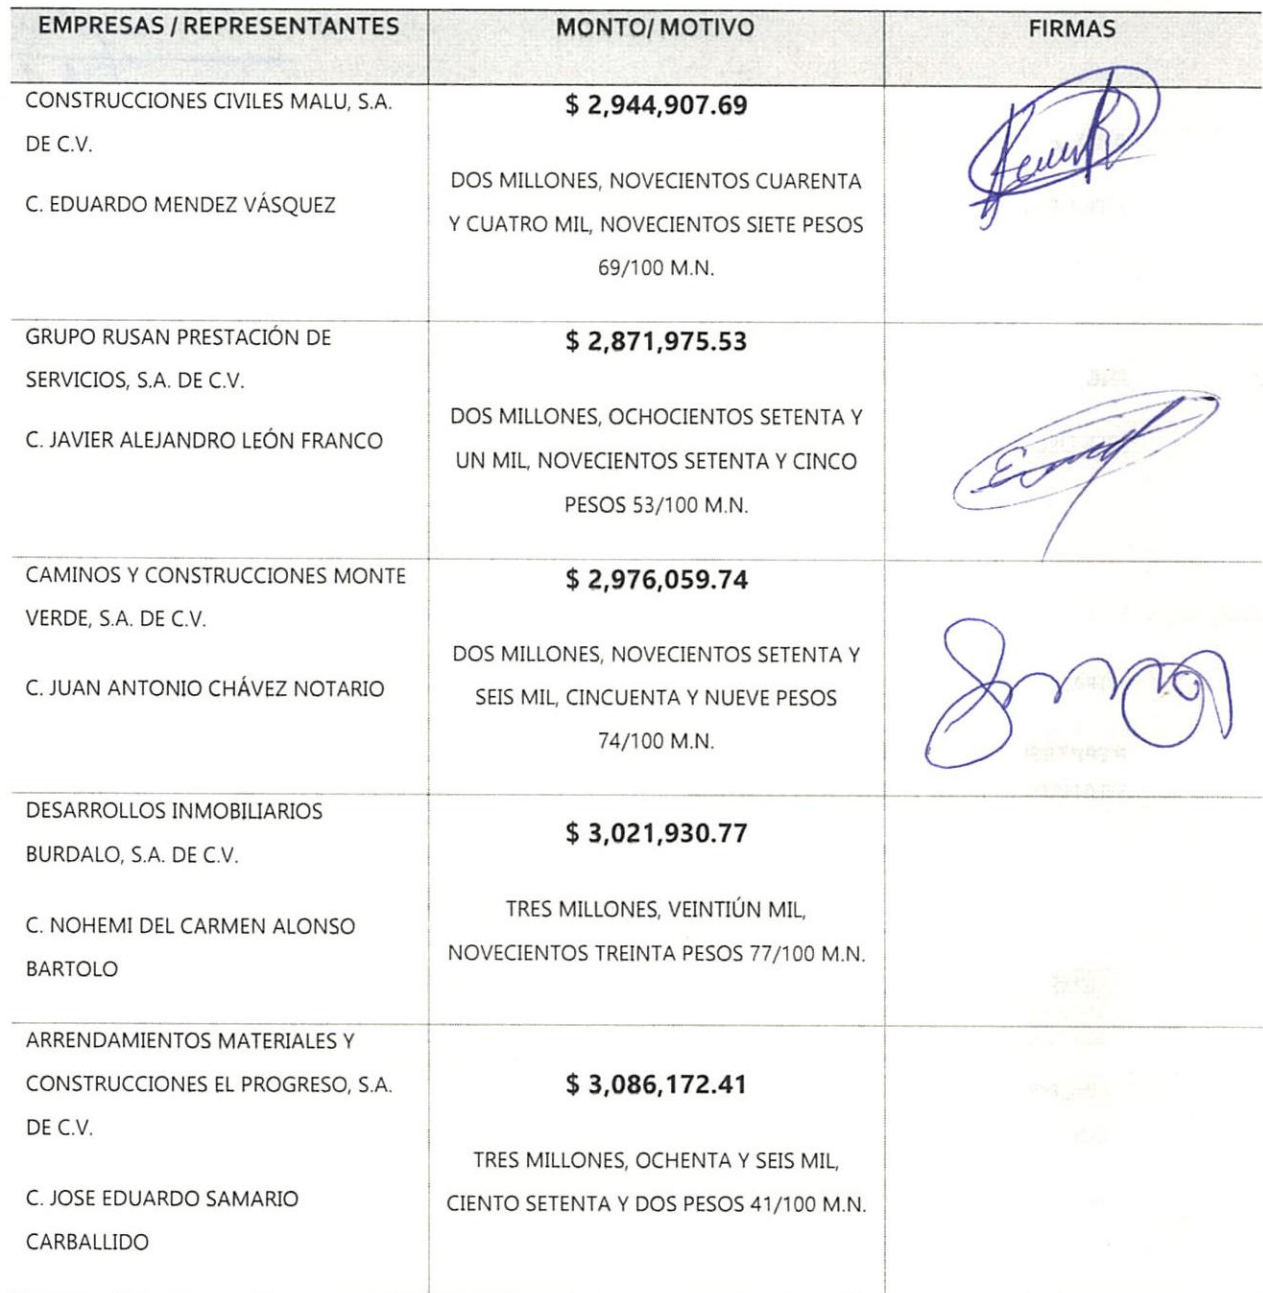 EMPRESAS / REPRESENTANTES
MONTO/ MOTIVO
FIRMAS
CONSTRUCCIONES CIVILES MALU, S.A.
DE C.V.
C. EDUARDO MENDEZ VÁSQUEZ
$ 2,944,907.69
DOS MILLONES, NOVECIENTOS CUARENTA
Y CUATRO MIL, NOVECIENTOS SIETE PESOS
69/100 M.N.
GRUPO RUSAN PRESTACIÓN DE
SERVICIOS, S.A. DE C.V.
C. JAVIER ALEJANDRO LEÓN FRANCO
$ 2,871,975.53
DOS MILLONES, OCHOCIENTOS SETENTA Y
UN MIL, NOVECIENTOS SETENTA Y CINCO
PESOS 53/100 M.N.
CAMINOS Y CONSTRUCCIONES MONTE
VERDE, S.A. DE C.V.
C. JUAN ANTONIO CHÁVEZ NOTARIO
$ 2,976,059.74
DOS MILLONES, NOVECIENTOS SETENTA Y
SEIS MIL, CINCUENTA Y NUEVE PESOS
74/100 M.N.
DESARROLLOS INMOBILIARIOS
BURDALO, S.A. DE C.V.
C. NOHEMI DEL CARMEN ALONSO
BARTOLO
$ 3,021,930.77
TRES MILLONES, VEINTIÚN MIL,
NOVECIENTOS TREINTA PESOS 77/100 M.N.
ARRENDAMIENTOS MATERIALES Y
CONSTRUCCIONES EL PROGRESO, S.A.
DE C.V.
C. JOSE EDUARDO SAMARIO
CARBALLIDO
$ 3,086,172.41
TRES MILLONES, OCHENTA Y SEIS MIL,
CIENTO SETENTA Y DOS PESOS 41/100 M.N.